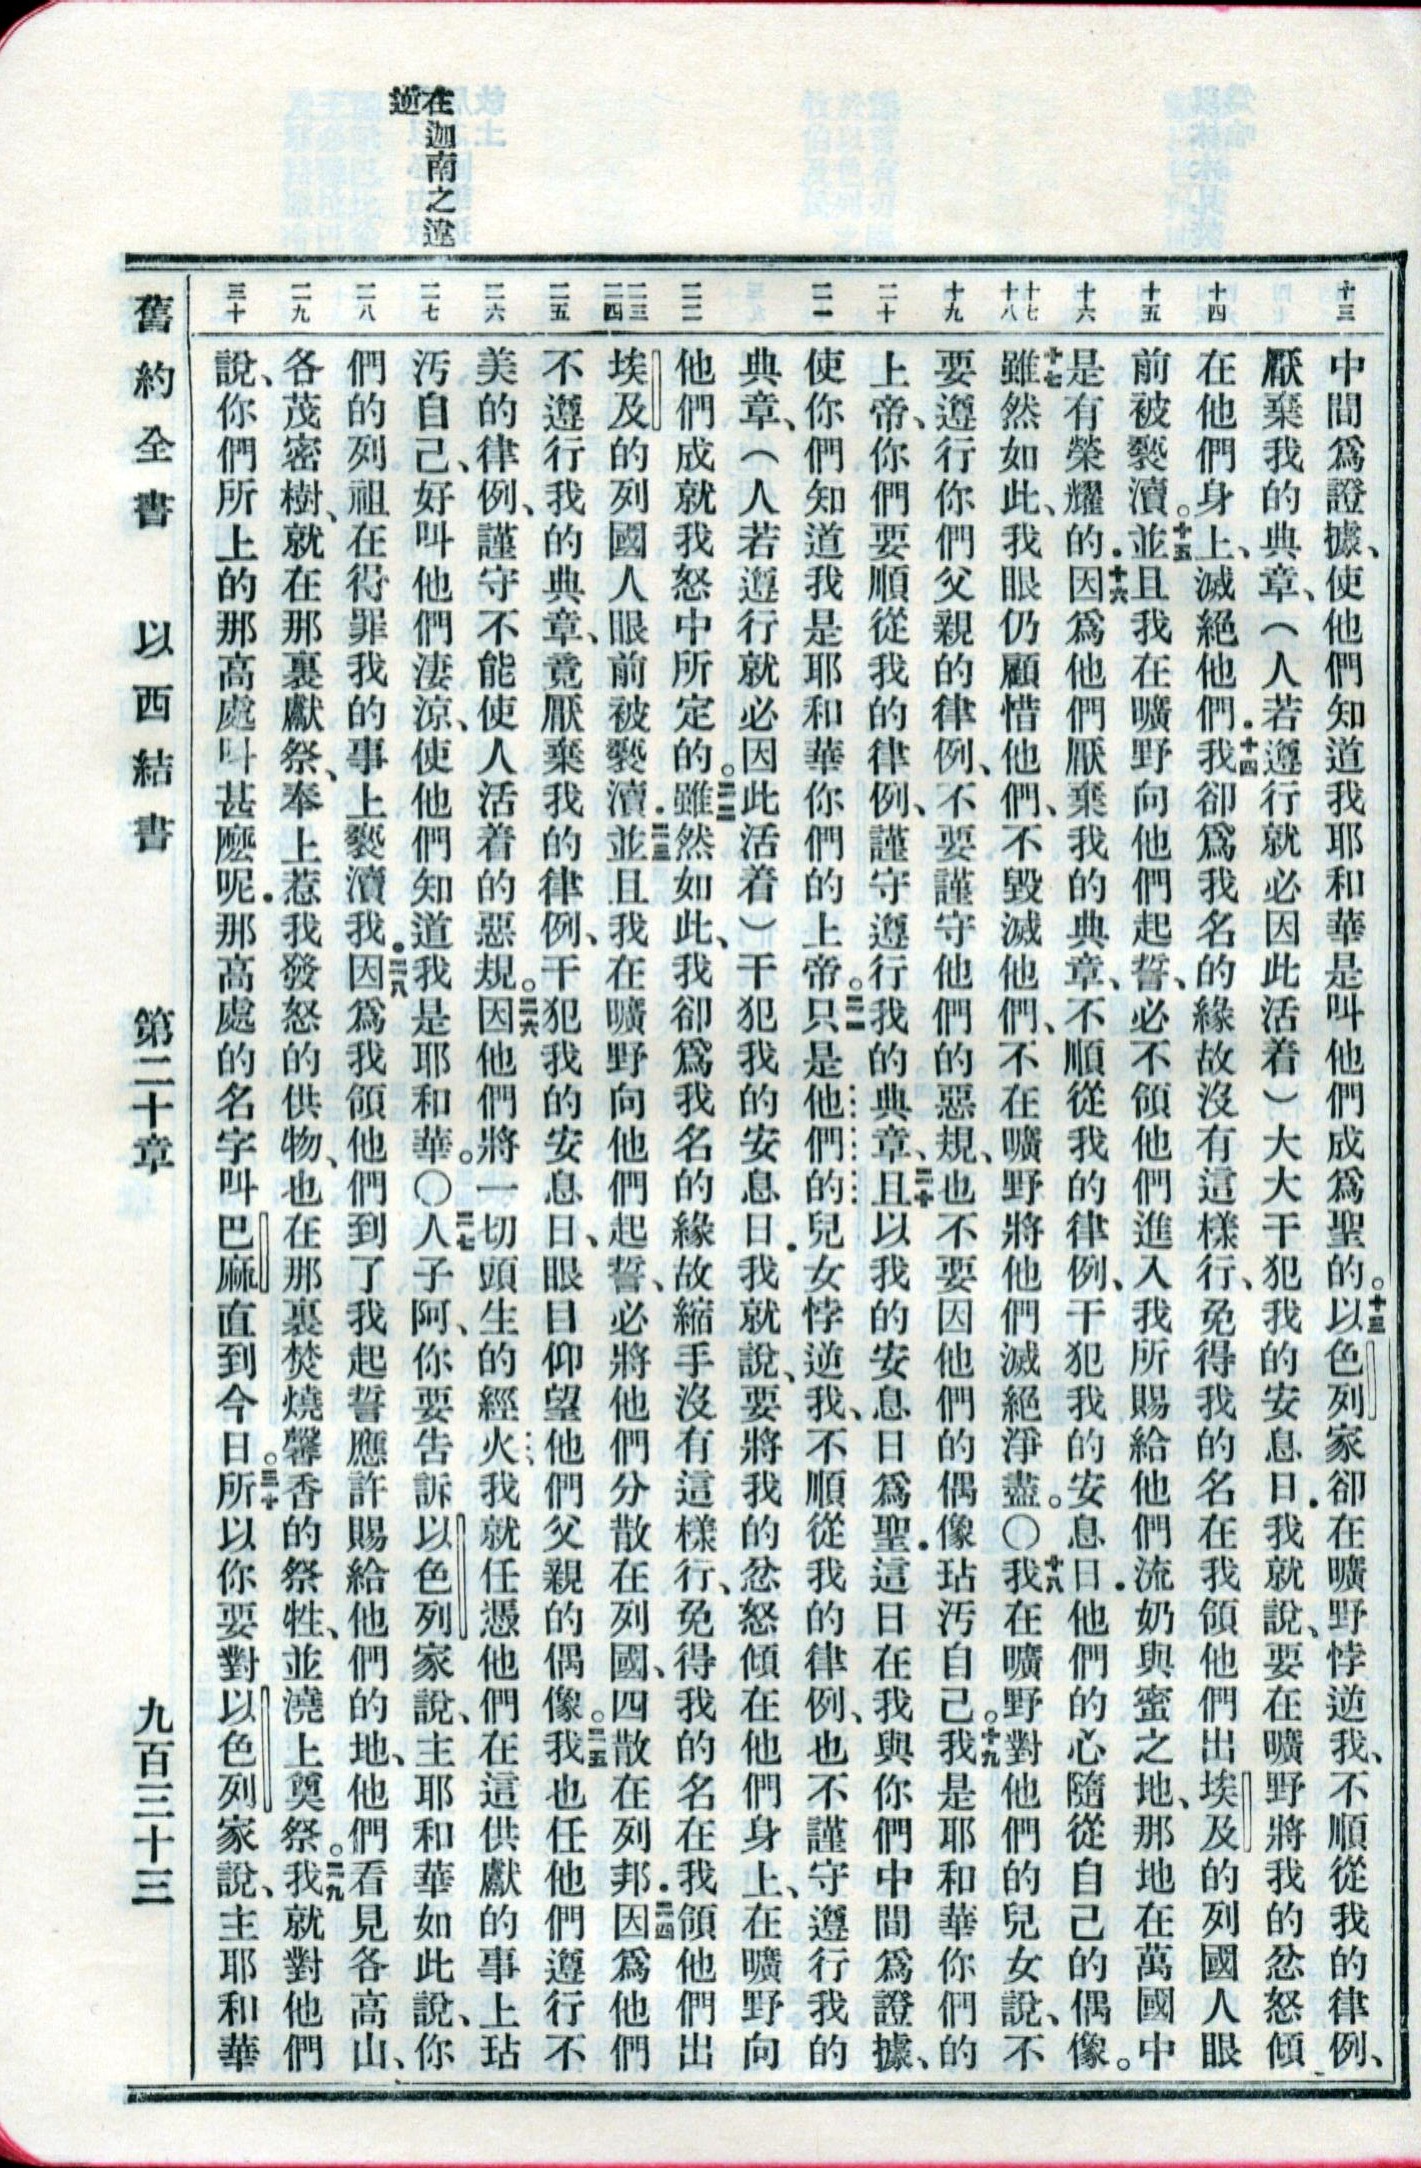 在迦南之違
逆
十三
十四
十五
十六
十七
十八
十九
二十
二一
二二
二三
二四
二五
二六
二七
二八
二九
三十
中間爲證據、使他們知道我耶和華是叫他們成爲聖的。十三以色列家卻在曠野悖逆我、不順從我的律例、
厭棄我的典章、（人若遵行就必因此活着）大大干犯我的安息日．我就說、要在曠野將我的忿怒傾
在他們身上、滅絕他們．十四我卻爲我名的緣故沒有這樣行、免得我的名在我領他們出埃及的列國人眼
前被褻瀆。十五並且我在曠野向他們起誓、必不領他們進入我所賜給他們流奶與蜜之地、那地在萬國中
是有榮耀的．十六因爲他們厭棄我的典章、不順從我的律例、干犯我的安息日．他們的心隨從自己的偶像。
十七雖然如此、我眼仍顧惜他們、不毀滅他們、不在曠野將他們滅絕淨盡。〇十八我在曠野對他們的兒女說、不
要遵行你們父親的律例、不要謹守他們的惡規、也不要因他們的偶像玷汚自己。十九我是耶和華你們的
上帝、你們要順從我的律例、謹守遵行我的典章、二十且以我的安息日爲聖．這日在我與你們中間爲證據、
使你們知道我是耶和華你們的上帝。二一只是他們的兒女悖逆我、不順從我的律例、也不謹守遵行我的
典章、（人若遵行就必因此活着）干犯我的安息日．我就說、要將我的忿怒傾在他們身上、在曠野向
他們成就我怒中所定的。二二雖然如此、我卻爲我名的緣故縮手沒有這樣行、免得我的名在我領他們出
埃及的列國人眼前被褻瀆．二三並且我在曠野向他們起誓、必將他們分散在列國、四散在列邦．二四因爲他們
不遵行我的典章、竟厭棄我的律例、干犯我的安息日、眼目仰望他們父親的偶像。二五我也任他們遵行不
美的律例、謹守不能使人活着的惡規。二六因他們將一切頭生的經火我就任憑他們在這供獻的事上玷
汚自己、好叫他們淒涼、使他們知道我是耶和華。〇二七人子阿、你要告訴以色列家說、主耶和華如此說、你
們的列祖在得罪我的事上褻瀆我．二八因爲我領他們到了我起誓應許賜給他們的地、他們看見各高山、
各茂密樹、就在那裏獻祭、奉上惹我發怒的供物、也在那裏焚燒馨香的祭牲、並澆上奠祭。二九我就對他們
說、你們所上的那高處叫甚麼呢．那高處的名字叫巴麻直到今日。三十所以你要對以色列家說、主耶和華
舊約全書　以西結書　第二十章　九百三十三